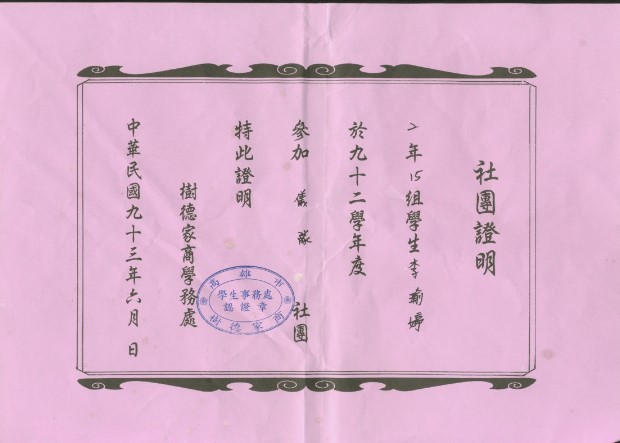 社團證明
2年15組學生李瑜婷
於九十二學年度
參加儀隊社團
特此證明
樹德家商學務處
中華民國九十三年六月 日
高雄市
學生事務處
認證章
樹德家商